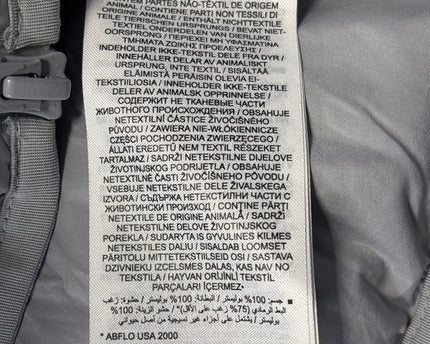 CONTÉM PARTES NÃO-TÊXTIL DE ORIGEM
ANIMAL / CONTIENE PARTI NON TESSILI DI
ORIGINE ANIMALE / ENTHÄLT NICHTTEXTILE
TEILE TIERISCHEN URSPRUNGS / BEVAT NIET-
TEXTIEL ONDERDELEN VAN DIERLIJKE
OORSPRONG / ΠΕΡΙΕΧΕΙ ΜΗ ΥΦΑΣΜΑΤΙΝΑ
ΤΜΗΜΑΤΑ ΖΩΙΚΗΣ ΠΡΟΕΛΕΥΣΗΣ /
INDEHOLDER IKKE-TEKSTIL DELE FRA DYR /
INNEHÅLLER DELAR AV ANIMALISKT
URSPRUNG, INTE TEXTIL / SISÄLTÄÄ
ELÄIMISTÄ PERÄISIN OLEVIA EI-
TEKSTIILIOSIA / INNEHOLDER IKK-TEKSTIL
DELER AV ANIMALSK OPPRINNELSE /
СОДЕРЖИТ НЕ ТКАНЕВЫЕ ЧАСТИ
ЖИВОТНОГО ПРОИСХОЖДЕНИЯ / OBSAHUJE
NETEXTILNÍ ČÁSTICE ŽIVOČIŠNÉHO
PŮVODU / ZAWIERA NIE-WŁÓKIENNICZE
CZĘŚCI POCHODZENIA ZWIERZĘCEGO /
ÁLLATI EREDETŰ NEM TEXTIL RÉSZEKET
TARTALMAZ / SADRŽI NETEKSTILNE DIJELOVE
ŽIVOTINJSKOG PODRIJETLA / OBSAHUJE
NETEXTILNÉ ČASTI ŽIVOČÍŠNEHO PÔVODU /
VSEBUJE NETEKSTILNE DELE ŽIVALSKEGA
IZVORA / СЪДЪРЖА НЕТЕКСТИЛНИ ЧАСТИ С
ЖИВОТИНСКИ ПРОИЗХОД / CONȚINE PĂRȚI
NETEXTILE DE ORIGINE ANIMALĂ / SADRŽI
NETEKSTILNE DELOVE ŽIVOTINJSKOG
POREKLA / SUDARYTA IŠ GYVULINĖS KILMĖS
NETEKSTILĖS DALIŲ / SISALDAB LOOMSET
PÄRITOLU MITTETEKSTIILSEID OSI / SASTĀVĀ
DZĪVNIEKU IZCELSMES DAĻAS, KAS NAV NO
TEKSTILA / HAYVAN ORİJİNLİ TEKSTİL
PARÇALARI İÇERMEZ*
* جسم: 100% بوليستر / البطانة: 100% بوليستر / حشوة: زغب
البط الرمادي (75% زغب على الأقل)* / حشو الزينة: 100%
بوليستر / يشتمل على أجزاء غير نسيجية من أصل حيواني
* ABFLO USA 2000